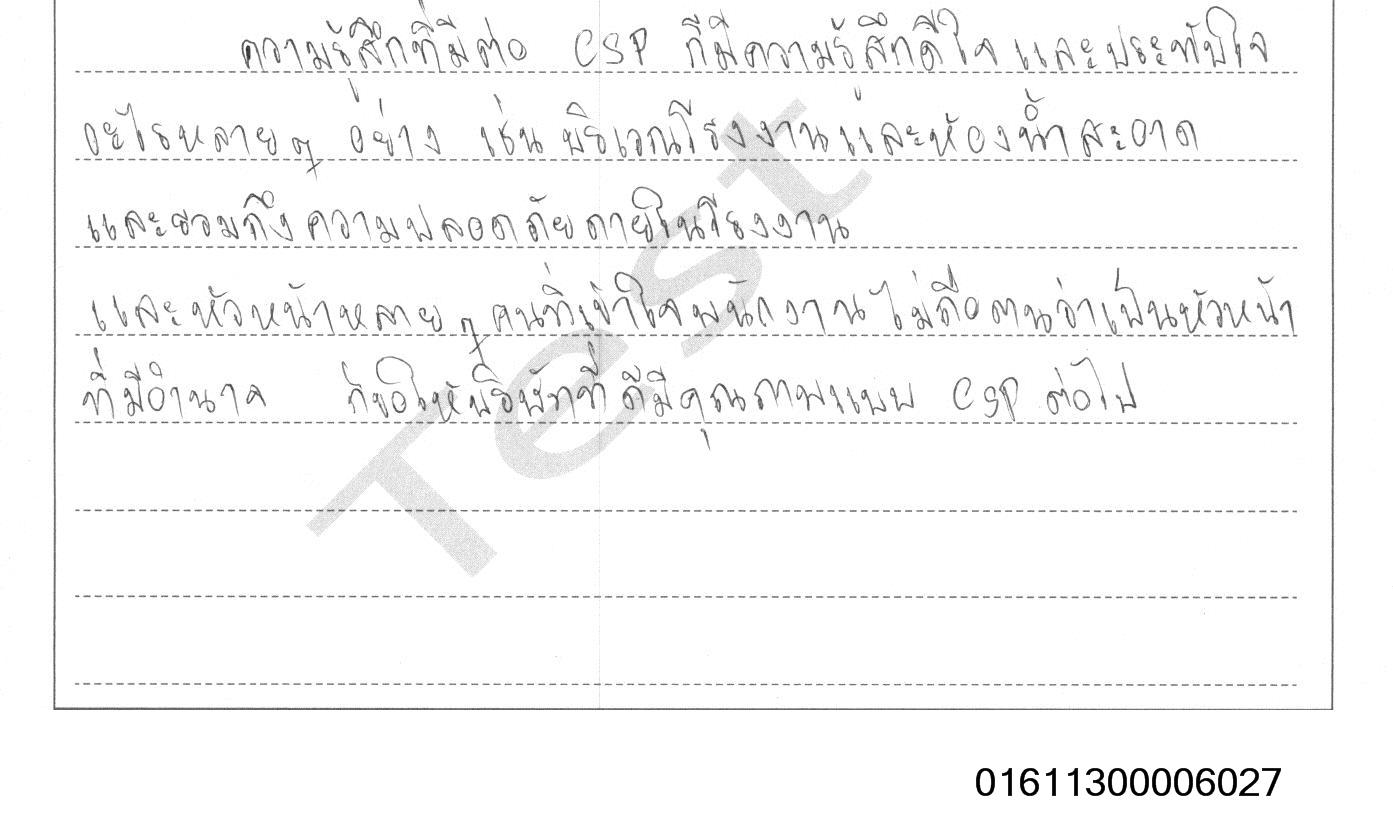 ความรู้สึกที่มีต่อ CSP ก็มีความรู้สึกดีใจ และประทับใจ
อะไรหลายๆ อย่าง เช่น บริเวณโรงงานและห้องน้ำสะอาด
และรวมถึงความปลอดภัยภายในโรงงาน
และหัวหน้าหลายๆ คนที่เข้าใจพนักงาน ไม่ถือตนว่าเป็นหัวหน้า
ที่มีอำนาจ ก็ขอให้บริษัทที่ดีมีคุณภาพแบบ CSP ต่อไป
Test
01611300006027